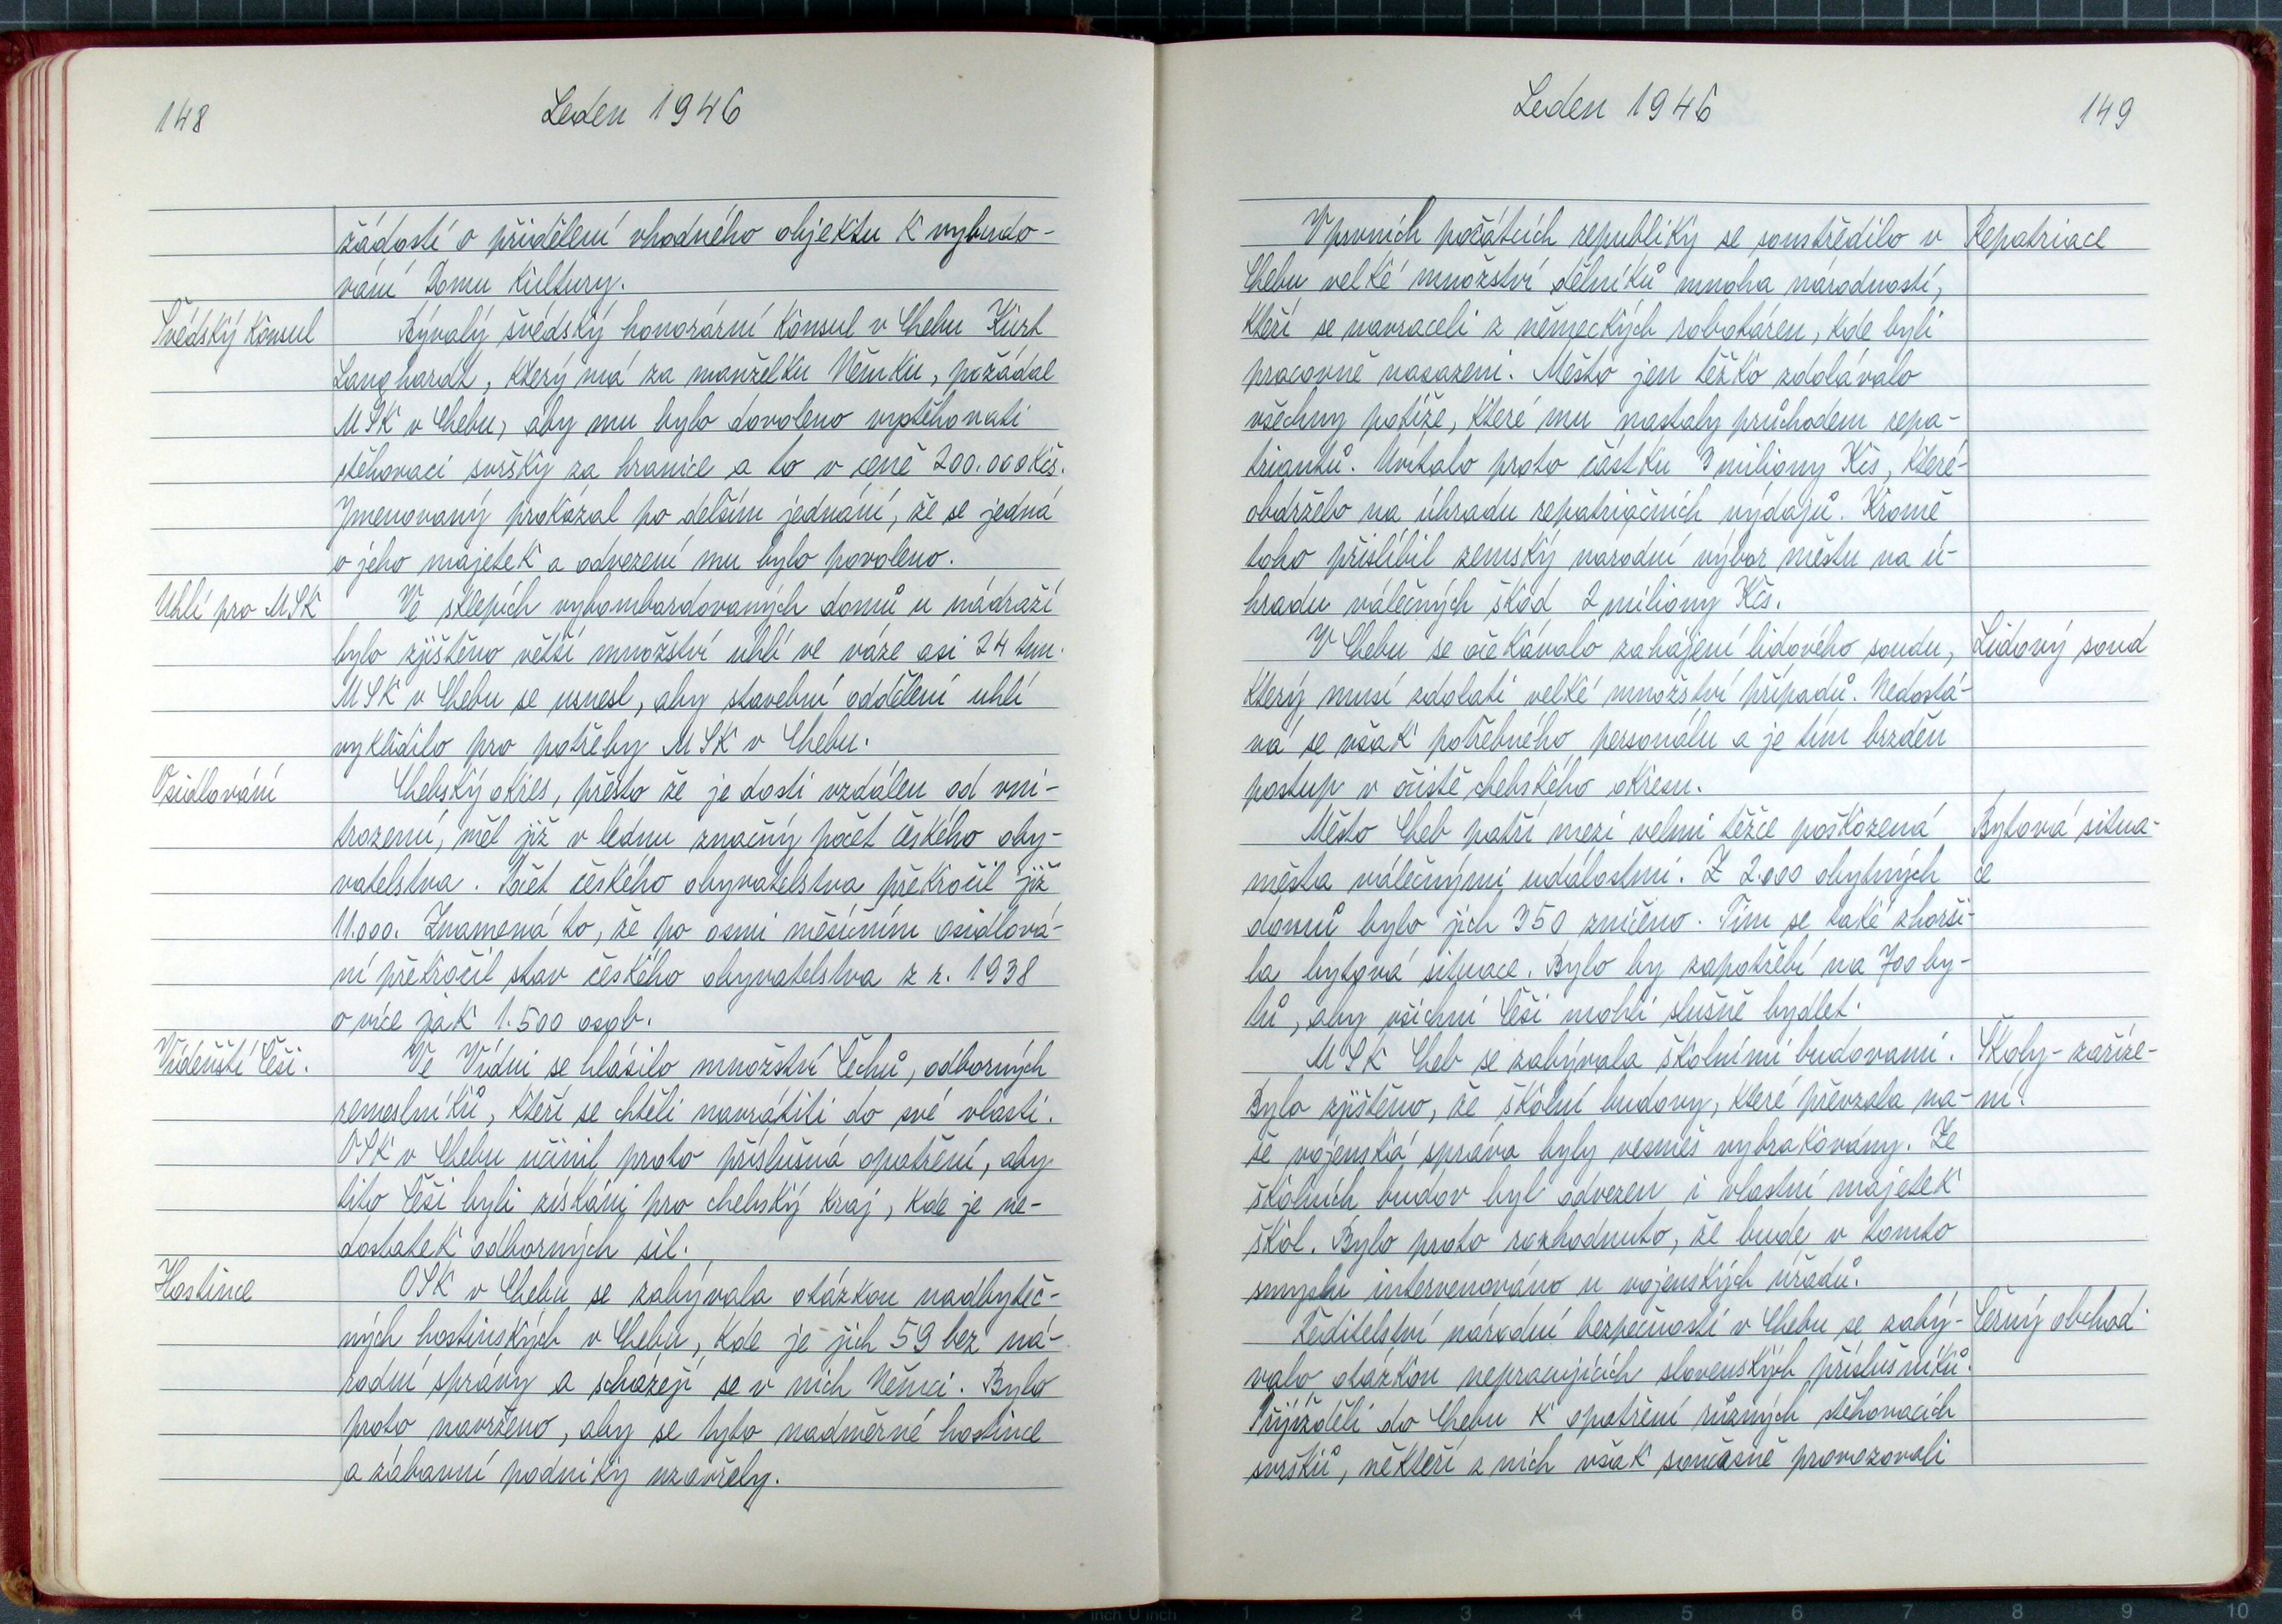 148
Leden 1946
žádostí o přidělení vhodného objektu k vybudo-
vání Domu kultury.
Švédský konsul
Bývalý švédský honorární konsul v Chebu Kurt
Langhardt, který má za manželku Němku, požádal
MSK v Chebu, aby mu bylo dovoleno vystěhovati
stěhovací svršky za hranice a to v ceně 200.000 Kčs.
Jmenovaný prokázal po delším jednání, že se jedná
o jeho majetek a odvezení mu bylo povoleno.
Uhlí pro MSK
Ve sklepích vybombardovaných domů u nádraží
bylo zjištěno větší množství uhlí ve váze asi 24 tun.
MSK v Chebu se usnesl, aby stavební oddělení uhlí
vyklidilo pro potřeby MSK v Chebu.
Osidlování
Chebský okres, přesto že je dosti vzdálen od vni-
trozemí, měl již v lednu značný počet českého oby-
vatelstva. Počet českého obyvatelstva překročil již
11.000. Znamená to, že po osmi měsíčním osidlová-
ní překročil stav českého obyvatelstva z r. 1938
o více jak 1.500 osob.
Vídeňští Češi.
Ve Vídni se hlásilo množství Čechů, odborných
řemeslníků, kteří se chtěli navrátiti do své vlasti.
OSK v Chebu učinil proto příslušná opatření, aby
tito Češi byli získáni pro chebský kraj, kde je ne-
dostatek odborných sil.
Hostince
OSK v Chebu se zabývala otázkou nadbyteč-
ných hostinských v Chebu, kde je jich 59 bez ná-
rodní správy a scházejí se v nich Němci. Bylo
proto navrženo, aby se tyto nadměrné hostince
a zábavní podniky uzavřely.
Leden 1946
149
V prvních počátcích republiky se soustředilo v
Repatriace
Chebu velké množství dělníků mnoha národností,
kteří se navraceli z německých robotáren, kde byli
pracovně nasazeni. Město jen těžko zdolávalo
všechny potíže, které mu nastaly průchodem repa-
triantů. Uvítalo proto částku 3 miliony Kčs, které
obdrželo na úhradu repatriačních výdajů. Kromě
toho přislíbil zemský národní výbor městu na ú-
hradu válečných škod 2 miliony Kčs.
V Chebu se očekávalo zahájení lidového soudu,
Lidový soud
který musí zdolati velké množství případů. Nedostá-
vá se však potřebného personálu a je tím brzděn
postup v očistě chebského okresu.
Město Cheb patří mezi velmi těžce poškozená
Bytová situa-
města válečnými událostmi. Z 2.000 obytných
ce
domů bylo jich 350 zničeno. Tím se také zhorši-
la bytová situace. Bylo by zapotřebí na 700 by-
tů, aby všichni Češi mohli slušně bydlet.
MSK Cheb se zabývala školními budovami.
Školy - zaříze-
Bylo zjištěno, že školní budovy, které převzala na-
ní.
še vojenská správa byly vesměs vybrakovány. Ze
školních budov byl odvezen i vlastní majetek
škol. Bylo proto rozhodnuto, že bude v tomto
smyslu intervenováno u vojenských úřadů.
Ředitelství národní bezpečnosti v Chebu se zabý-
Černý obchod.
valo otázkou nepracujících slovenských příslušníků.
Přijížděli do Chebu k opatření různých stěhovacích
svršků, někteří z nich však současně provozovali
inch
1
2
3
4
5
6
7
8
9
10